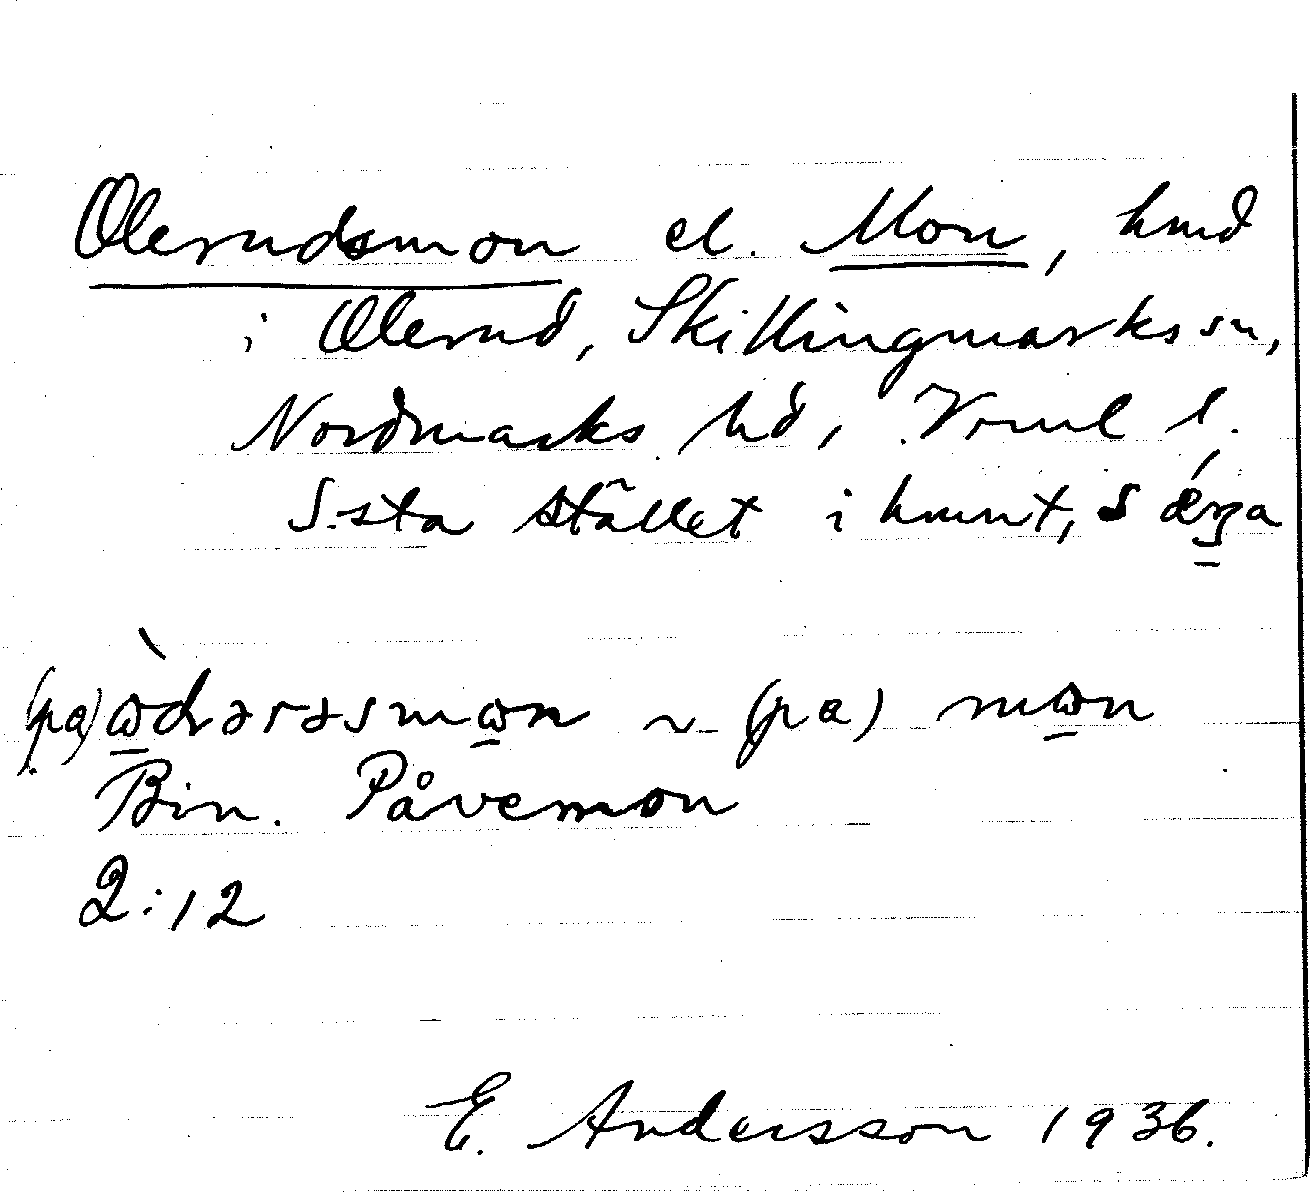 Olerudsmon el. Mon, hmd
i Olerud, Skillingmarks sn,
Nordmarks hd, Vrml l.
S.sta stället i hmnt, S
(pa) ~ (pa) mωn
Bin. Påvemon
2:12
E. Andersson 1936.